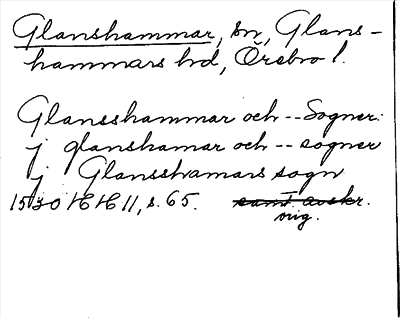 Glanshammar, sn, Glans-
hammars hd, Örebro l.
Glansshammar och -- Sogner:
j glanshamar och -- sogner
j Glansshamars sogn
1530 HH II, s. 65. samt. avskr.
orig.